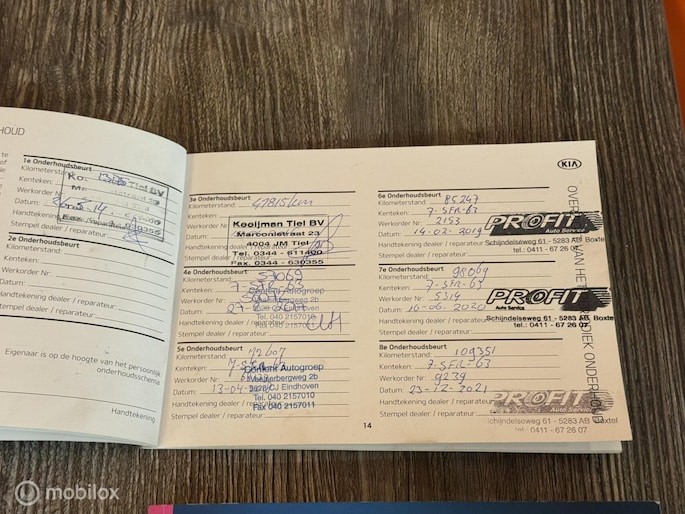 HOUD
1e Onderhoudsbeurt
Kilometerstand:
Kenteken:
Werkorder Nr
Datum: 26-5-14
Handtekening
Stempel dealer
Tiel BV
2e Onderhoudsbeurt
Kilometerstand:
Kenteken:
Werkorder Nr :
Datum:
Handtekening dealer / reparateur :
Stempel dealer / reparateur :
Eigenaar is op de hoogte van het persoonlijk
onderhoudsschema
Handtekening
3e Onderhoudsbeurt
Kilometerstand: 47815km
Kooijman Tiel BV
Marconistraat 23
4004 JM Tiel
Tel. 0344 - 611400
Fax. 0344 - 630355
4e Onderhoudsbeurt
Kilometerstand: 57069
Kenteken: 7-SFR-63
Werkorder Nr
Datum:
Handtekening dealer / reparateur :
Stempel dealer / reparateur :
Content Autogroep
Tel. 040 2157010
5e Onderhoudsbeurt
Kilometerstand: 72607
Kenteken:
Werkorder Nr
Datum: 13-04-
Handtekening dealer / reparateur :
Stempel dealer / reparateur :
Content Autogroep
Meerenakkerweg 2b
CJ Eindhoven
Tel. 040 2157010
Fax 040 2157011
KIA
6e Onderhoudsbeurt
Kilometerstand: 85247
Kenteken: 7-SFR-63
Werkorder Nr : 2153
Datum: 14-02-2019
Handtekening dealer / reparateur :
Stempel dealer / reparateur :
PROFIT
Auto Service
Schijndelseweg 61 - 5283 AB Boxtel
tel.: 0411 - 67 26 07
7e Onderhoudsbeurt
Kilometerstand: 98069
Kenteken: 7-SFR-63
Werkorder Nr : 5314
Datum: 16-06-2020
Handtekening dealer / reparateur :
Stempel dealer / reparateur :
PROFIT
Auto Service
Schijndelseweg 61 - 5283 AB Boxtel
tel.: 0411 - 67 26 07
8e Onderhoudsbeurt
Kilometerstand: 109351
Kenteken: 7-SFR-63
Werkorder Nr : 9239
Datum: 23-12-2021
Handtekening dealer / reparateur :
Stempel dealer / reparateur :
PROFIT
Auto Service
Schijndelseweg 61 - 5283 AB Boxtel
tel.: 0411 - 67 26 07
14
mobilox